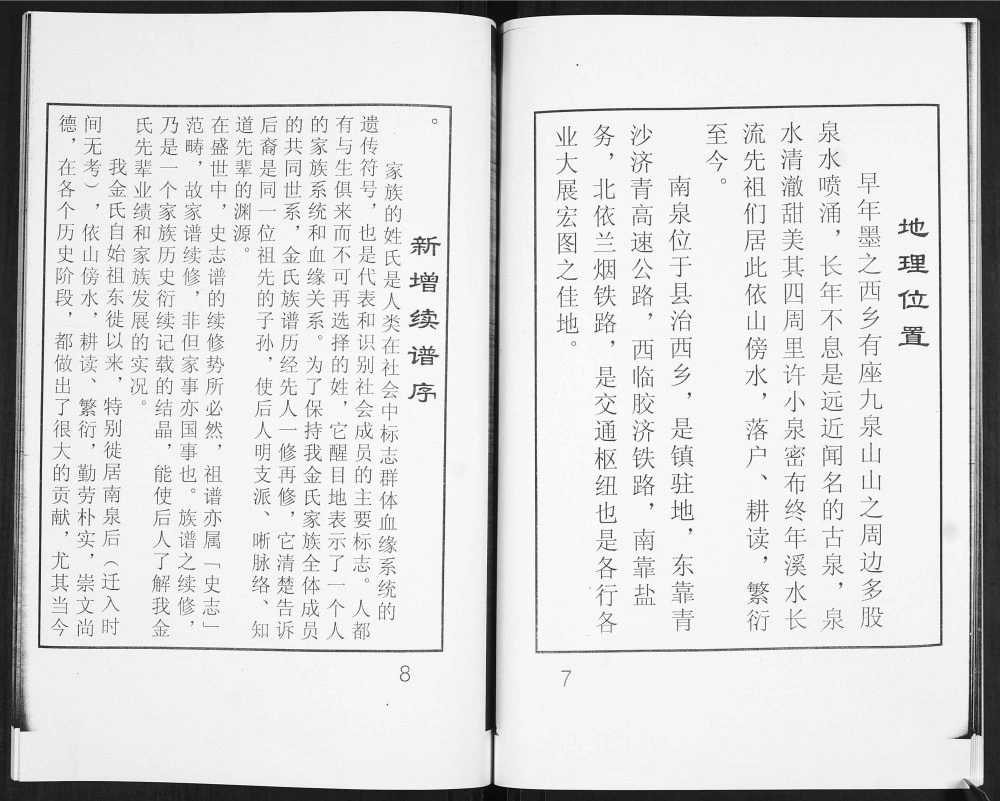 地理位置
早年墨之西乡有座九泉山山之周边多股
泉水喷涌，长年不息是远近闻名的古泉，泉
水清澈甜美其四周里许小泉密布终年溪水长
流先祖们居此依山傍水，落户、耕读，繁衍
至今。
南泉位于县治西乡，是镇驻地，东靠青
沙济青高速公路，西临胶济铁路，南靠盐
务，北依兰烟铁路，是交通枢纽也是各行各
业大展宏图之佳地。
7
新增续谱序
。
家族的姓氏是人类在社会中标志群体血缘系统的
遗传符号，也是代表和识别社会成员的主要标志。人都
有与生俱来而不可再选择的姓，它醒目地表示了一个人
的家族系统和血缘关系。为了保持我金氏家族全体成员
的共同世系，金氏族谱历经先人一修再修，它清楚告诉
后裔是同一位祖先的子孙，使后人明支派、晰脉络、知
道先辈的渊源。
在盛世中，史志谱的续修势所必然，祖谱亦属「史志」
范畴，故家谱续修，非但家事亦国事也。族谱之续修，
乃是一个家族历史衍续记载的结晶，能使后人了解我金
氏先辈业绩和家族发展的实况。
我金氏自始祖东徙以来，特别徙居南泉后（迁入时
间无考），依山傍水，耕读、繁衍，勤劳朴实，崇文尚
德，在各个历史阶段，都做出了很大的贡献，尤其当今
8